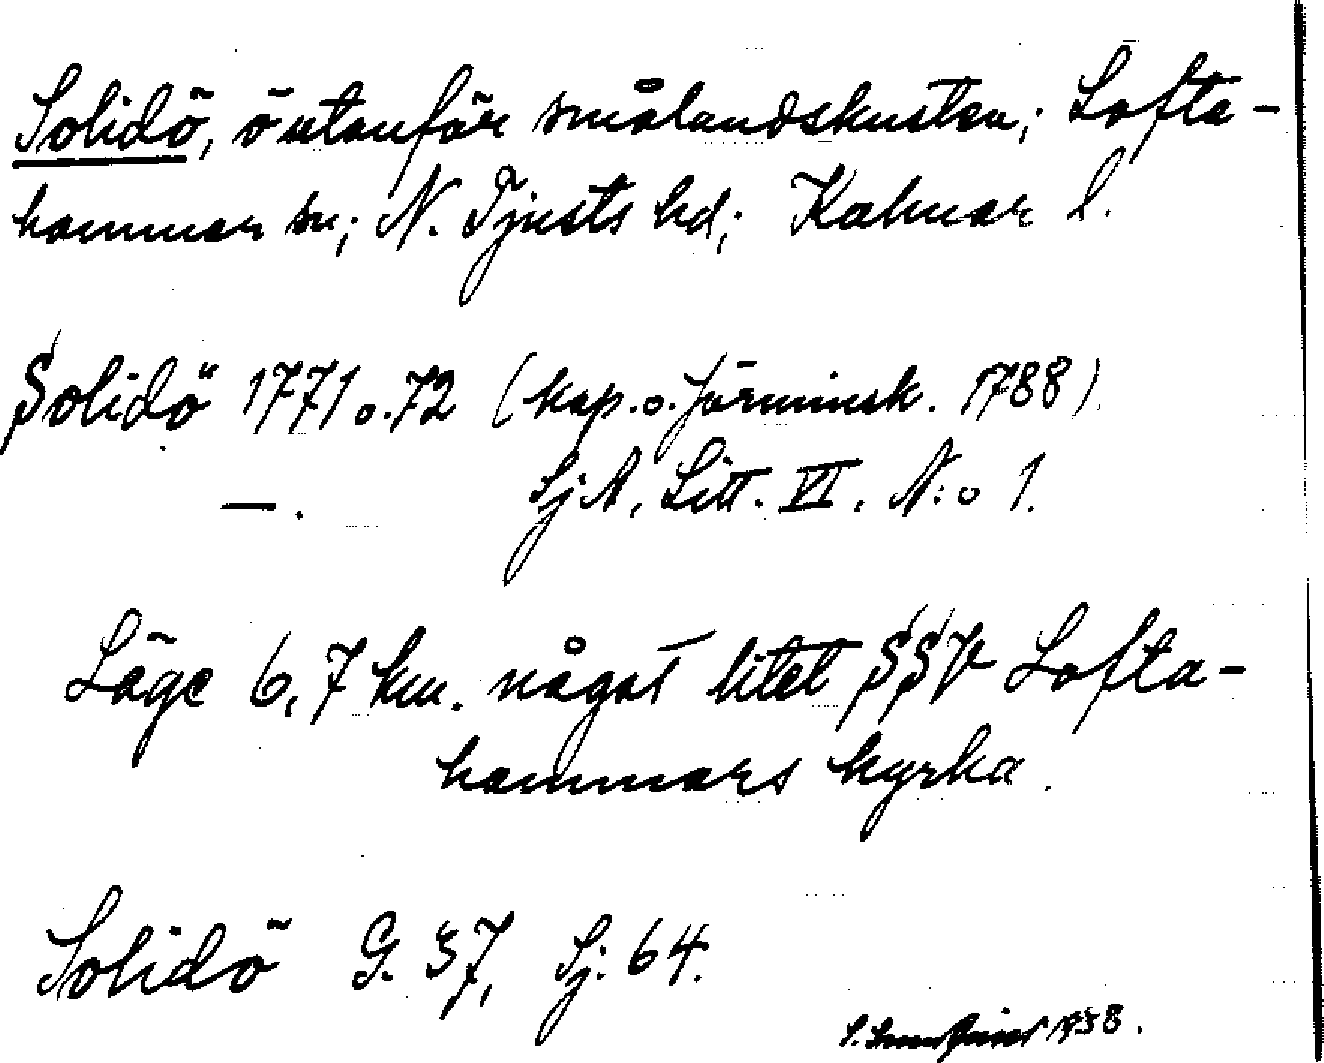 Solidö, ö utanför smålandskusten; Lofta-
hammar sn; N. Tjusts hd; Kalmar l.
Solidö 1771 o. 72 (kop. o. förminsk. 1788)
—. SjA, Litt. VI. N:o 1.
Läge 6,7 km. något litet SSV Lofta-
hammars kyrka.
Solidö G. 37, Sj. 64.
1938.